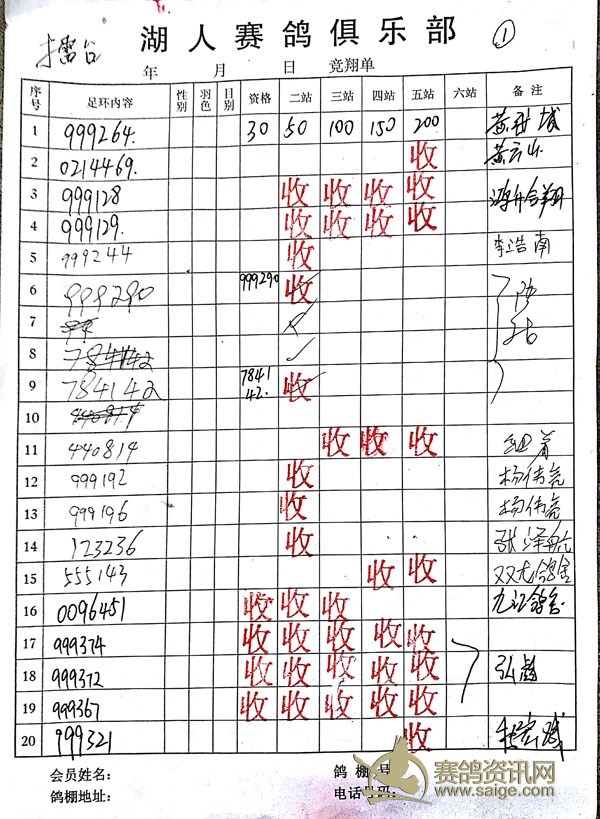 擂台
湖人赛鸽俱乐部 ①
年 月 日 竞翔单
序号 足环内容 性别 羽色 目别 资格 二站 三站 四站 五站 六站 备注
1 999264. 30 50 100 150 200
2 0214469. 收
3 999128 收 收 收 收
4 999129. 收 收 收 收
5 999244 收 李浩南
6 998290 999290 收
7
8
9 784142 784142. 收
10
11 440814 收 收 收
12 999192 收 杨伟亮
13 999196 收 杨伟亮
14 123236 收 张泽航
15 555143 收 收 双龙鸽舍
16 0096451 收 收 收 九江鸽舍
17 999374 收 收 收 收 收
18 999372 收 收 收 收 收
19 999367 收 收 收 收 收
20 999321 收
会员姓名: 鸽棚 号
鸽棚地址: 电话号码:
赛鸽资讯网
www.saige.com